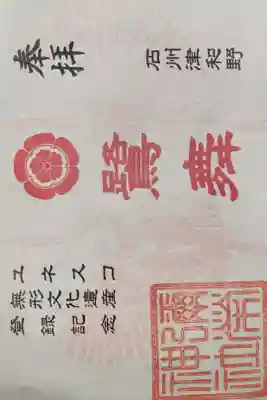 奉拝
石州津和野
鷺舞
ユネスコ
無形文化遺産
登録記念
彌榮神社